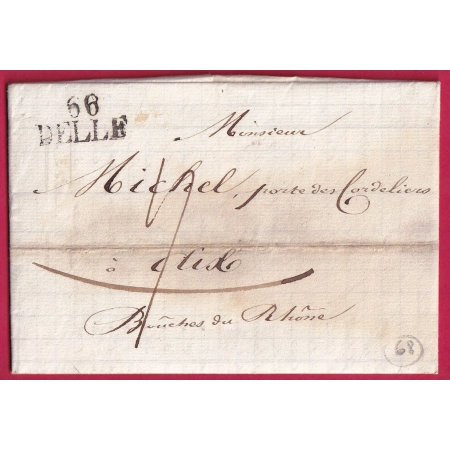 66
DELLE
Monsieur
Michel, porte des Cordeliers
à Aix
Bouches du Rhône
68